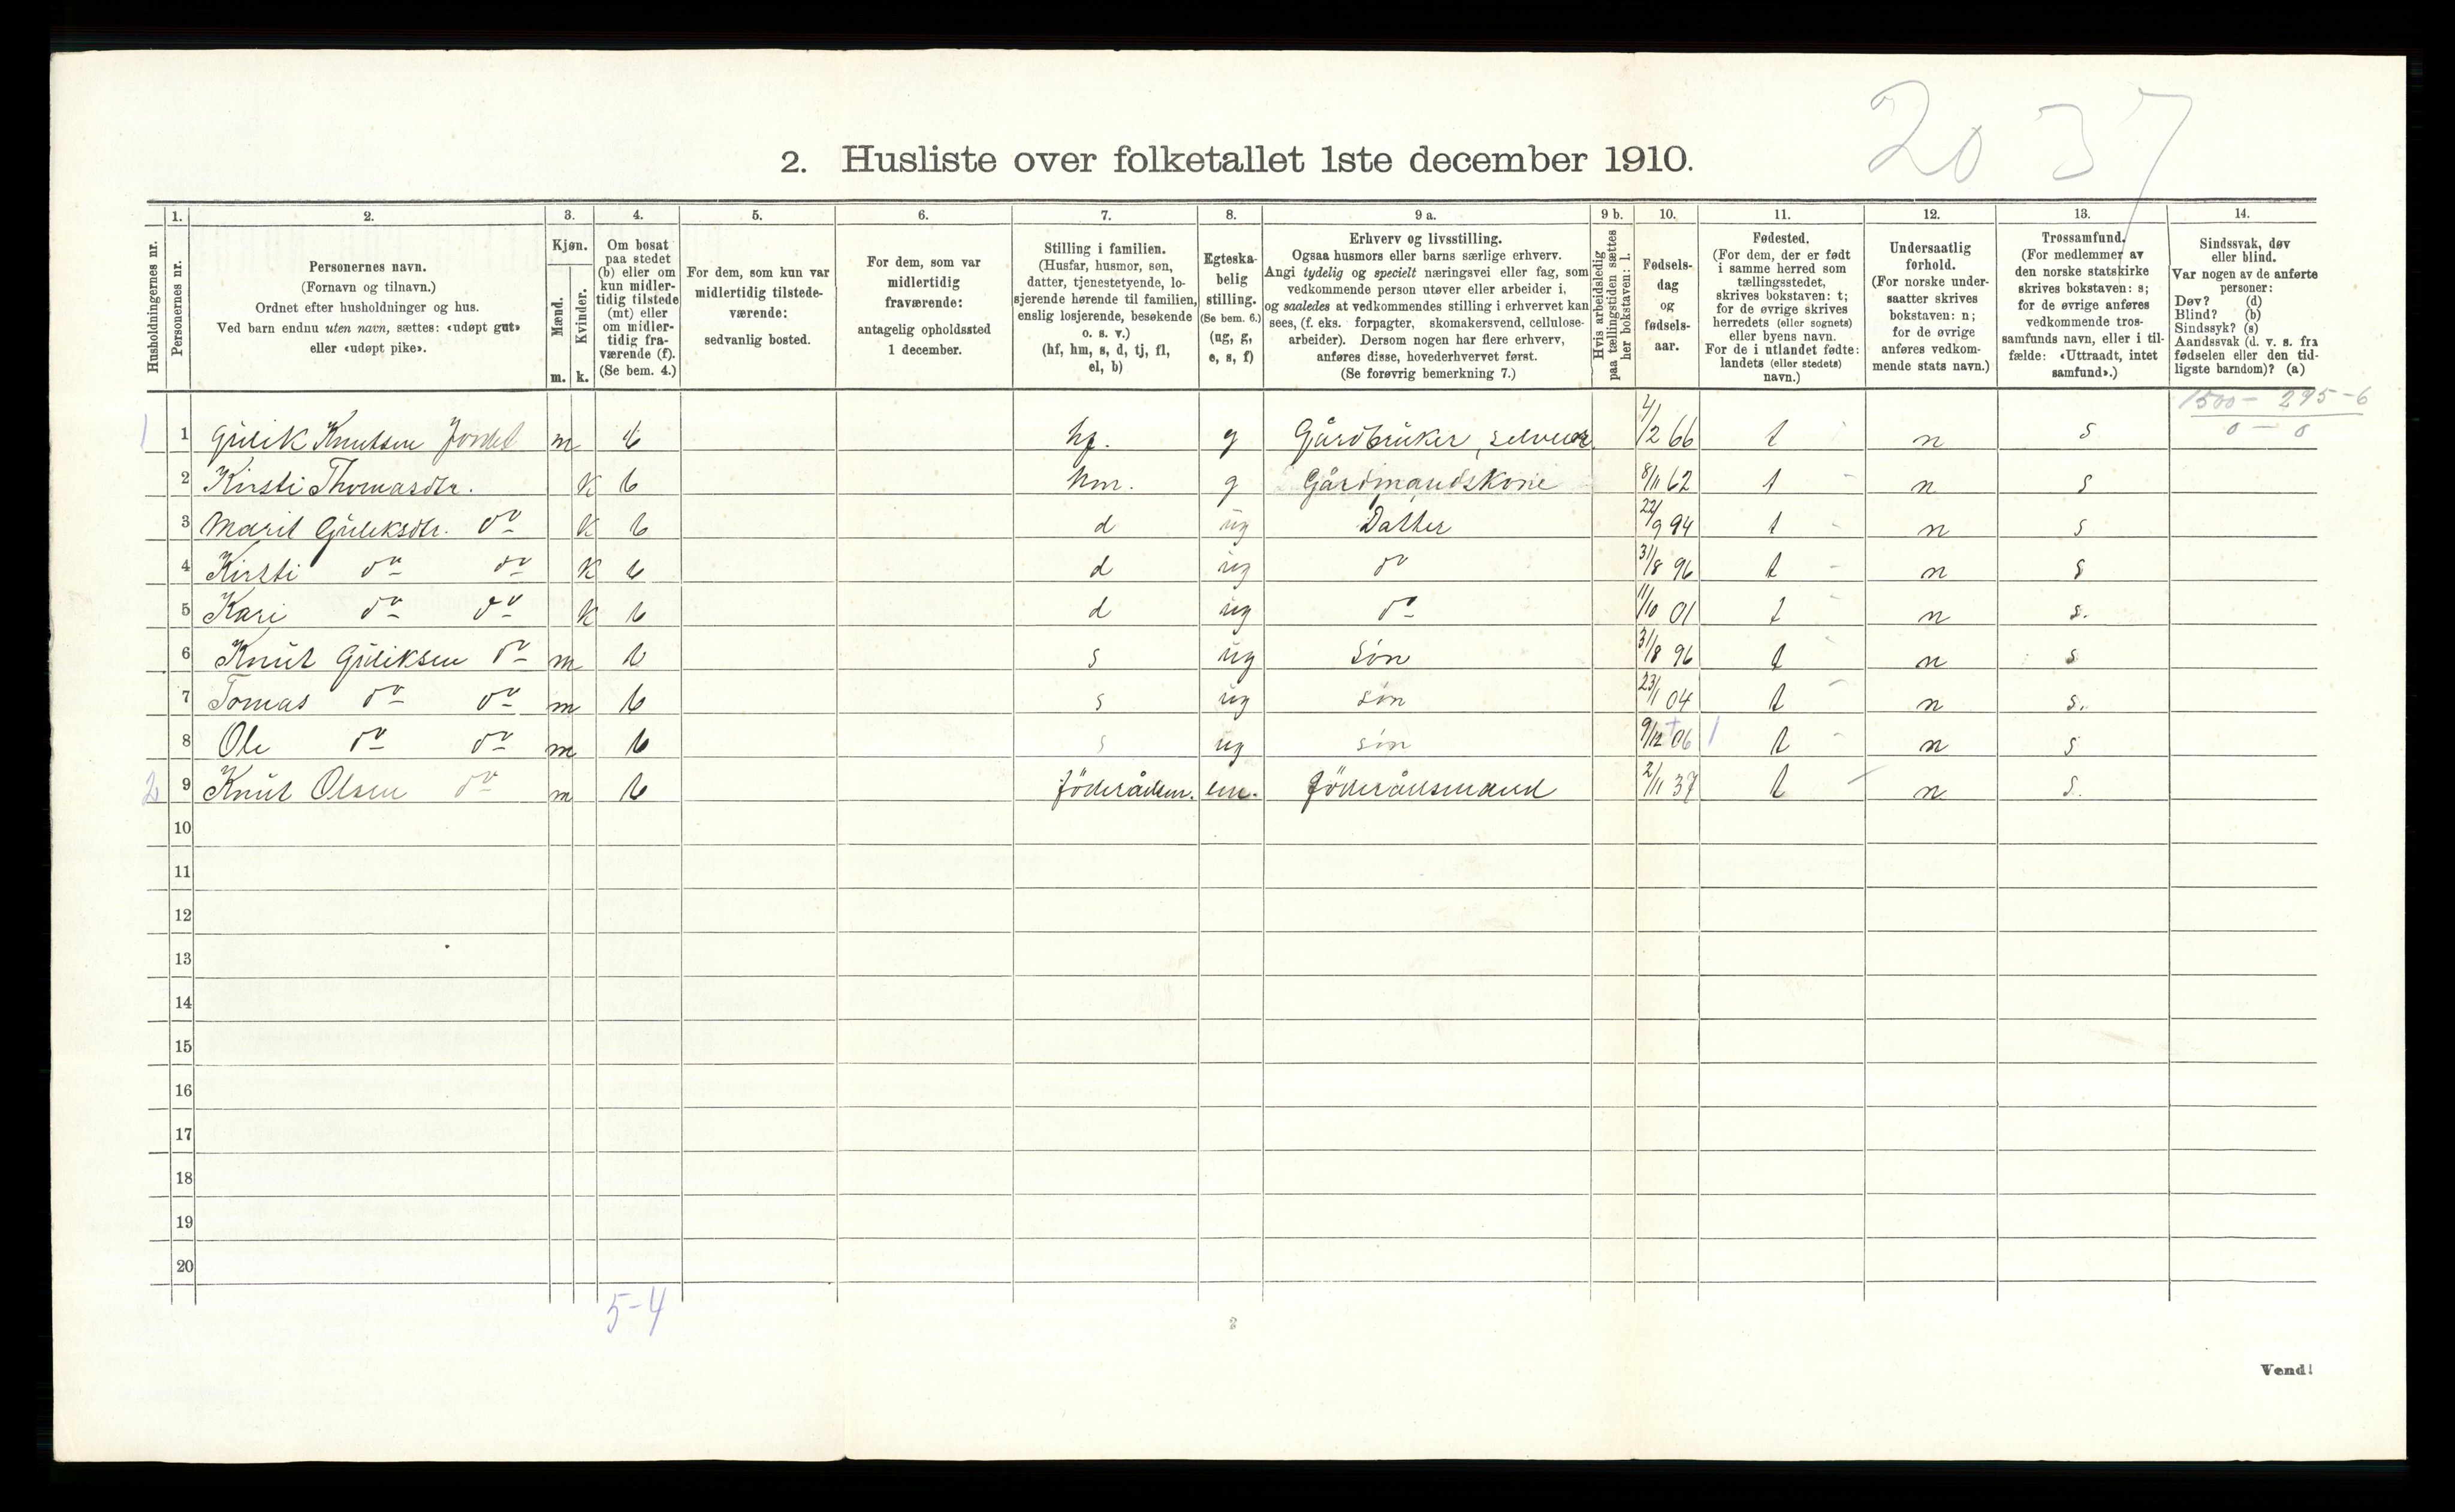 20 37
2. Husliste over folketallet 1ste december 1910.
1. 2. 3. 4. 5. 6. 7. 8. 9 a. 9 b. 10. 11. 12. 13. 14.
Husholdningernes nr.
Personernes nr.
Personernes navn.
(Fornavn og tilnavn.)
Ordnet efter husholdninger og hus.
Ved barn endnu uten navn, sættes: «udøpt gut»
eller «udøpt pike».
Kjøn.
Mænd.
Kvinder.
m. k.
Om bosat
paa stedet
(b) eller om
kun midler-
tidig tilstede
(mt) eller
om midler-
tidig fra-
værende (f).
(Se bem. 4.)
For dem, som kun var
midlertidig tilstede-
værende:
sedvanlig bosted.
For dem, som var
midlertidig
fraværende:
antagelig opholdssted
1 december.
Stilling i familien.
(Husfar, husmor, søn,
datter, tjenestetyende, lo-
sjerende hørende til familien,
enslig losjerende, besøkende
o. s. v.)
(hf, hm, s, d, tj, fl,
el, b)
Egteska-
belig
stilling.
(Se bem. 6.)
(ug, g,
e, s, f)
Erhverv og livsstilling.
Ogsaa husmors eller barns særlige erhverv.
Angi tydelig og specielt næringsvei eller fag, som
vedkommende person utøver eller arbeider i,
og saaledes at vedkommendes stilling i erhvervet kan
sees, (f. eks. forpagter, skomakersvend, cellulose-
arbeider). Dersom nogen har flere erhverv,
anføres disse, hovederhvervet først.
(Se forøvrig bemerkning 7.)
Hvis arbeidsledig
paa tællingstiden sættes
her bokstaven: l.
Fødsels-
dag
og
fødsels-
aar.
Fødested.
(For dem, der er født
i samme herred som
tællingsstedet,
skrives bokstaven: t;
for de øvrige skrives
herredets (eller sognets)
eller byens navn.
For de i utlandet fødte:
landets (eller stedets)
navn.)
Undersaatlig
forhold.
(For norske under-
saatter skrives
bokstaven: n;
for de øvrige
anføres vedkom-
mende stats navn.)
Trossamfund.
(For medlemmer av
den norske statskirke
skrives bokstaven: s;
for de øvrige anføres
vedkommende tros-
samfunds navn, eller i til-
fælde: «Uttraadt, intet
samfund».)
Sindssvak, døv
eller blind.
Var nogen av de anførte
personer:
Døv? (d)
Blind? (b)
Sindssyk? (s)
Aandssvak (d. v. s. fra
fødselen eller den tid-
ligste barndom)? (a)
1500 - 295 - 6
0 - 0
1 1 Gulik Knutsen Jordet m b hf. g Gårdbruker, selveier 4/2 66 t n s
2 Kirsti Thomasdtr. k b hm. g Gårdmandskone 8/11 62 t n s
3 Marit Guliksdtr. do k b d ug Datter 22/9 94 t n s
4 Kirsti do do k b d ug do 31/8 96 t n s
5 Kari do do k b d ug do 11/10 01 t n s.
6 Knut Guliksen do m b s ug Søn 31/8 96 t n s
7 Tomas do do m b s ug søn 23/1 04 t n s.
8 Ole do do m b s ug søn 9/12 06 t n s
2 9 Knut Olsen do m b föderådsm. em. föderådsmand 2/11 37 t n s.
10
11
12
13
14
15
16
17
18
19
20
5-4
2
Vend!